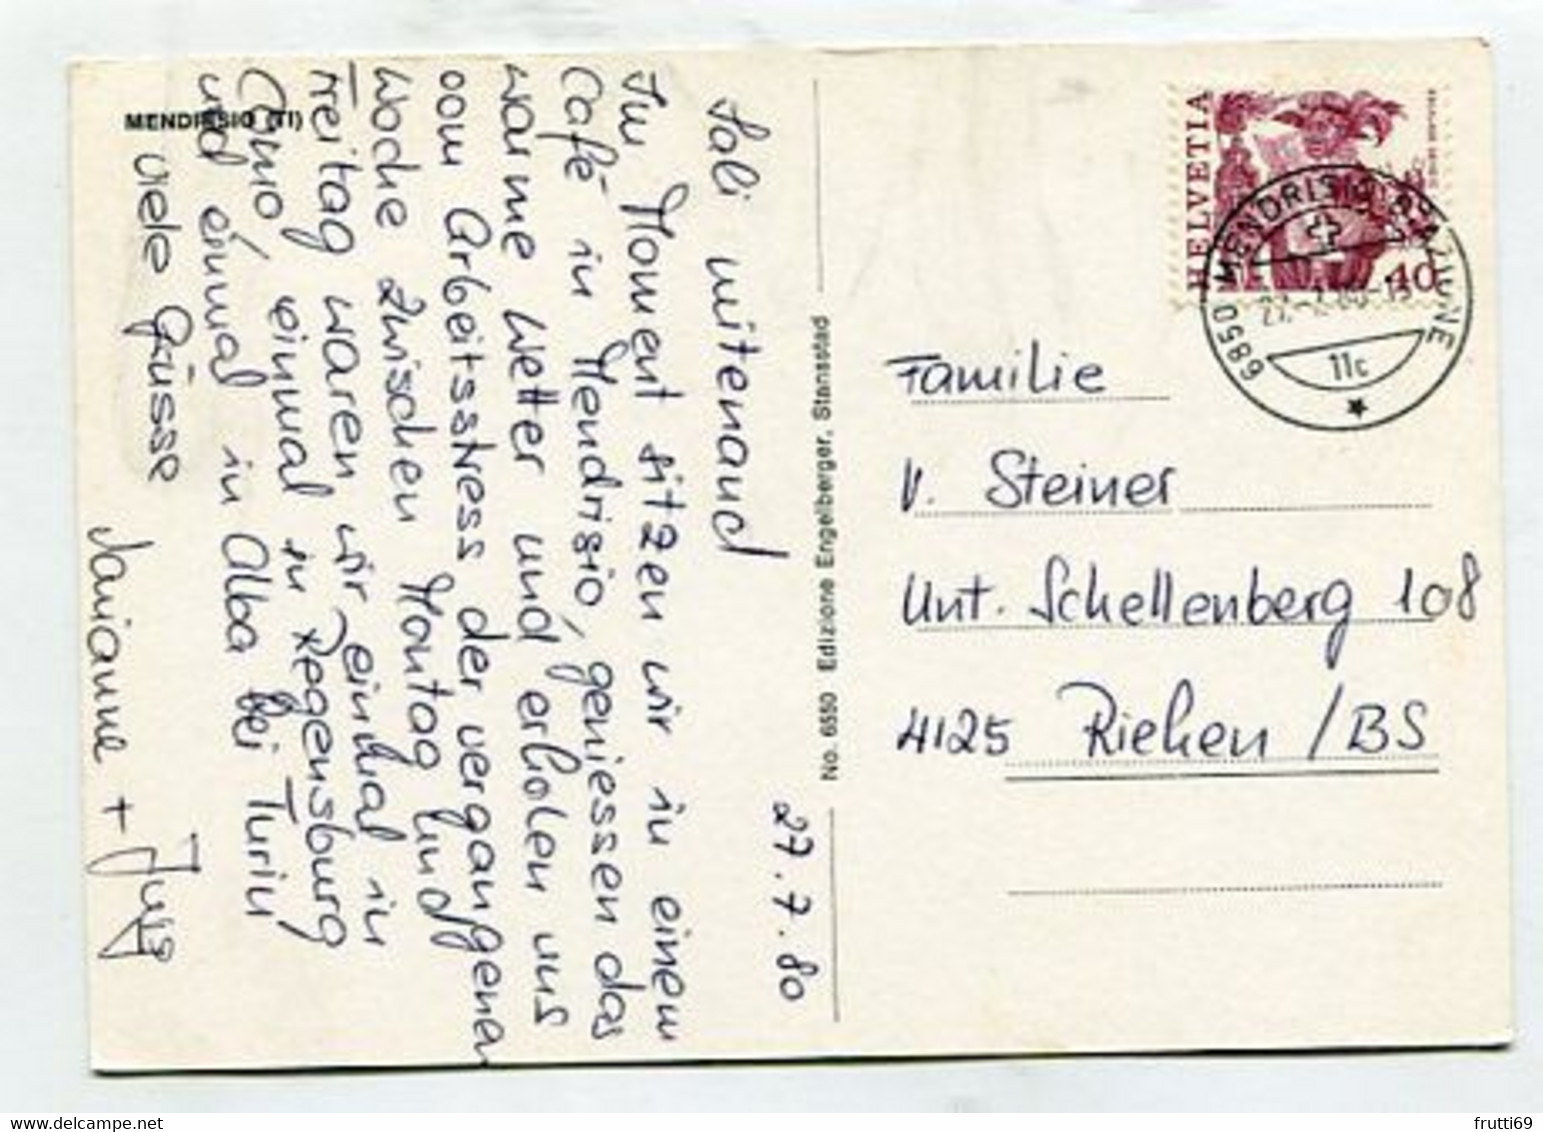 MENDRISIO (TI)
27.7.80
Sali mitenand
Im Moment sitzen wir in einem
Café in Mendrisio, geniessen das
warme Wetter und erholen uns
vom Arbeitsstress der vergangenen
Woche. Zwischen Montag und
Freitag waren wir einmal in
Como, einmal in Regensburg
und einmal in Alba bei Turin
Viele Grüsse
Marianne + Jürg
No. 6550 Edizione Engelberger, Stansstad
HELVETIA
40
6850 MENDRISIO STAZIONE
27.-7.80-
11c
Familie
V. Steiner
Unt. Schellenberg 108
4125 Riehen /BS
frutti69